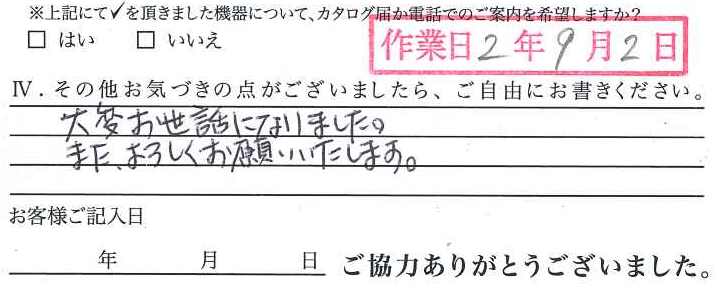 ※上記にて✓を頂きました機器について、カタログ届か電話でのご案内を希望しますか?
□ はい　□ いいえ
作業日2年9月2日
Ⅳ．その他お気づきの点がございましたら、ご自由にお書きください。
大変お世話になりました。
また、よろしくお願いいたします。
お客様ご記入日
年　月　日　ご協力ありがとうございました。